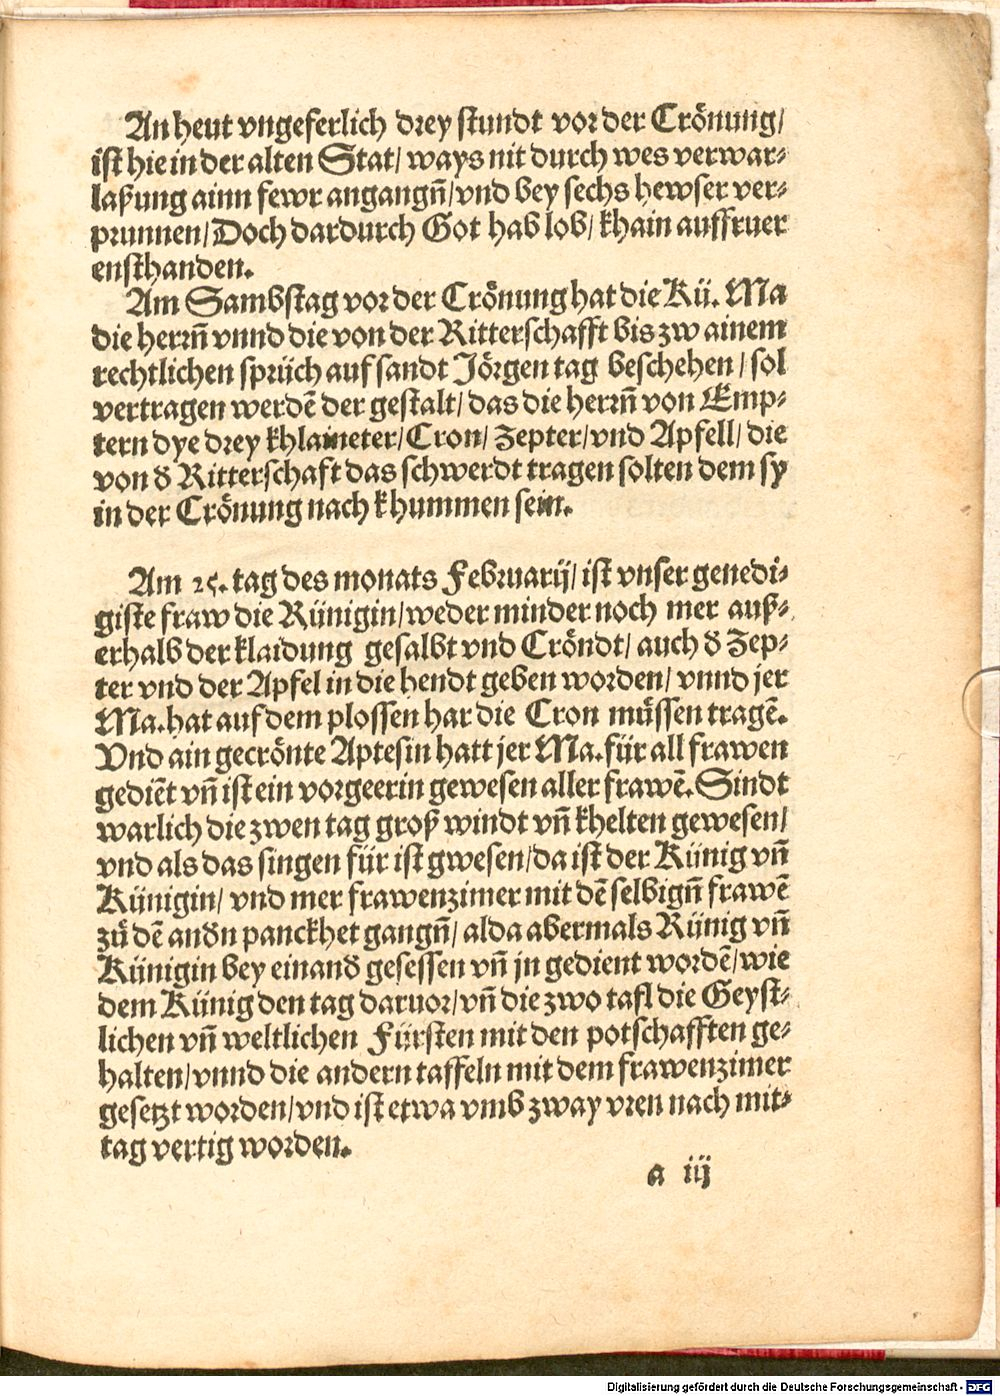 An heut vngeferlich drey stundt vor der Crönung/
ist hie in der alten Stat/ ways nit durch wes verwar⸗
laßung ainn fewr angangñ/ vnd bey sechs hewser ver⸗
prunnen/ Doch dardurch Got hab lob/ khain auffruer
ensthanden.
Am Sambstag vor der Crönung hat die Kü. Ma
die herrñ vnnd die von der Ritterschafft bis zw ainem
rechtlichen sprüch auf sandt Jörgen tag beschehen/ sol
vertragen werdẽ der gestalt/ das die herrñ von Emp⸗
tern dye drey khlaineter/ Cron/ Zepter/ vnd Apfell/ die
von ď Ritterschaft das schwerdt tragen solten dem sy
in der Crönung nach khummen sein.
Am 25. tag des monats Februarij/ ist vnser genedi⸗
giste fraw die Künigin/ weder minder noch mer auß⸗
erhalb der klaidung gesalbt vnd Cröndt/ auch ď Zep⸗
ter vnd der Apfel in die hendt geben worden/ vnnd jer
Ma. hat auf dem plossen har die Cron müssen tragẽ.
Vnd ain gecrönte Aptesin hatt jer Ma. für all frawen
gediẽt vñ ist ein vorgeerin gewesen aller frawẽ. Sindt
warlich die zwen tag groß windt vñ khelten gewesen/
vnd als das singen für ist gwesen/ da ist der Künig vñ
Künigin/ vnd mer frawenzimer mit dẽ selbigñ frawẽ
zů dẽ anďn panckhet gangñ/ alda abermals Künig vñ
Künigin bey einanď gesessen vñ jn gedient wordẽ/ wie
dem Künig den tag daruor/ vñ die zwo tafl die Geyst⸗
lichen vñ weltlichen Fürsten mit den potschafften ge⸗
halten/ vnnd die andern taffeln mit dem frawenzimer
gesetzt worden/ vnd ist etwa vmb zway vren nach mit⸗
tag vertig worden.
a iij
Digitalisierung gefördert durch die Deutsche Forschungsgemeinschaft - DFG